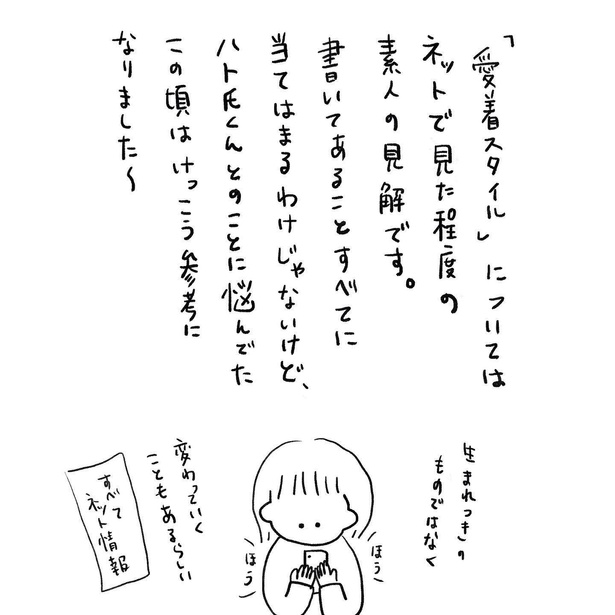 「愛着スタイル」については
ネットで見た程度の
素人の見解です。
書いてあることすべてに
当てはまるわけじゃないけど、
ハト氏くんとのことに悩んでた
この頃はけっこう参考に
なりました〜
生まれつきの
ものではなく
ほう
ほう
変わっていく
こともあるらしい
すべて
ネット情報